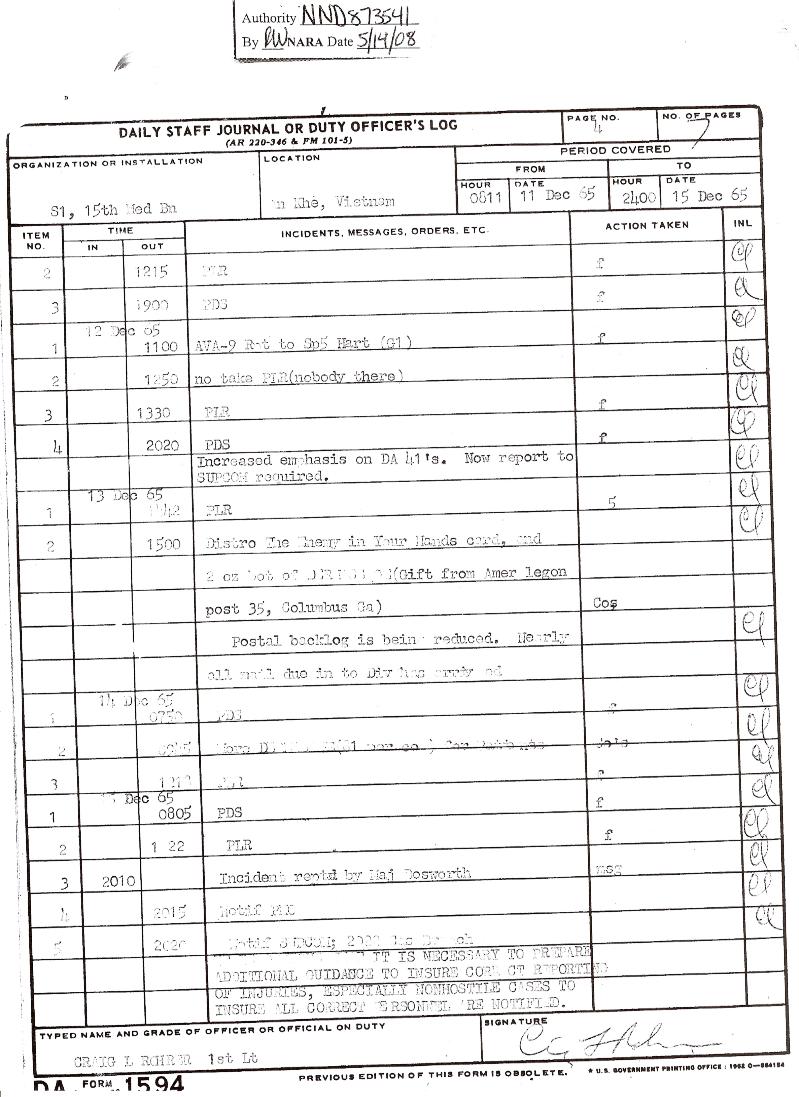 Authority NND873541
By RW NARA Date 5/14/08
DAILY STAFF JOURNAL OR DUTY OFFICER'S LOG
(AR 220-346 & FM 101-5)
PAGE NO.
4
NO. OF PAGES
7
ORGANIZATION OR INSTALLATION
S1, 15th Med Bn
LOCATION
An Khê, Vietnam
PERIOD COVERED
FROM
TO
HOUR DATE HOUR DATE
0811 11 Dec 65 2400 15 Dec 65
ITEM NO. TIME IN OUT INCIDENTS, MESSAGES, ORDERS, ETC. ACTION TAKEN INL
2 1215 PLR f
3 1900 PDS f
12 Dec 65
1 1100 AVA-9 Rpt to Sp5 Hart (G1) f
2 1250 no take PLR(nobody there)
3 1330 PLR f
4 2020 PDS f
Increased emphasis on DA 41's. Now report to
SUPCOM required.
13 Dec 65
1 PLR 5
2 1500 Distro The Enemy in Your Hands card, and
2 oz bot of (Gift from Amer legon
post 35, Columbus Ga) Cos
Postal backlog is being reduced. Nearly
all mail due in to Div has arrived
14 Dec 65
1 0730 PDS f
2
3 f
Dec 65
1 0805 PDS f
2 1 22 PLR f
3 2010 Incident reptd by Maj Bosworth msg
4 2015 Notif
5 2020 Notif
IT IS NECESSARY TO PREPARE
ADDITIONAL GUIDANCE TO INSURE CORRECT REPORTING
OF INJURIES, ESPECIALLY NONHOSTILE CASES TO
INSURE ALL CORRECT PERSONNEL ARE NOTIFIED.
TYPED NAME AND GRADE OF OFFICER OR OFFICIAL ON DUTY
CRAIG L ROHRER 1st Lt
SIGNATURE
DA FORM 1594
PREVIOUS EDITION OF THIS FORM IS OBSOLETE.
* U.S. GOVERNMENT PRINTING OFFICE : 1962 O—664184